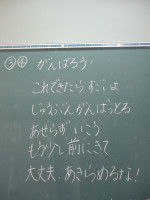 ③④ がんばろう
これできたらすごいよ
じゅうぶんがんばっとる
あせらずいこう
もう少し前にきて
大丈夫、あきらめるな!